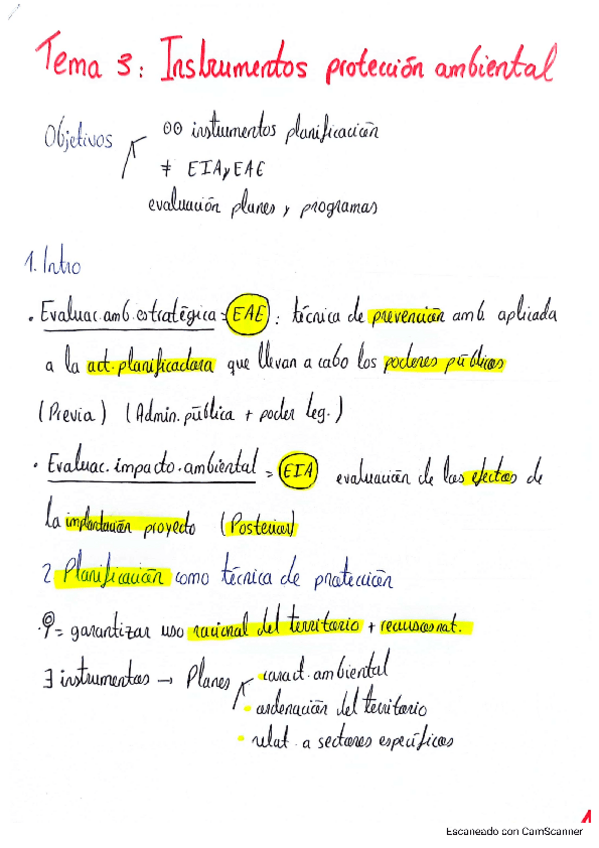 Tema 3: Instrumentos protección ambiental
Objetivos
00 instrumentos planificación
≠ EIA y EAE
evaluación planes y programas
1. Intro
• Evaluac. amb. estratégica = EAE : técnica de prevención amb. aplicada
a la act. planificadora que llevan a cabo los poderes públicos
(Previa) (Admin. pública + poder leg.)
• Evaluac. impacto. ambiental = EIA evaluación de los efectos de
la implantación proyecto (Posterior)
2 Planificación como técnica de protección
= garantizar uso racional del territorio + recursos nat.
∃ instrumentos → Planes
• caract. ambiental
• ordenación del territorio
• relat. a sectores específicos
1
Escaneado con CamScanner